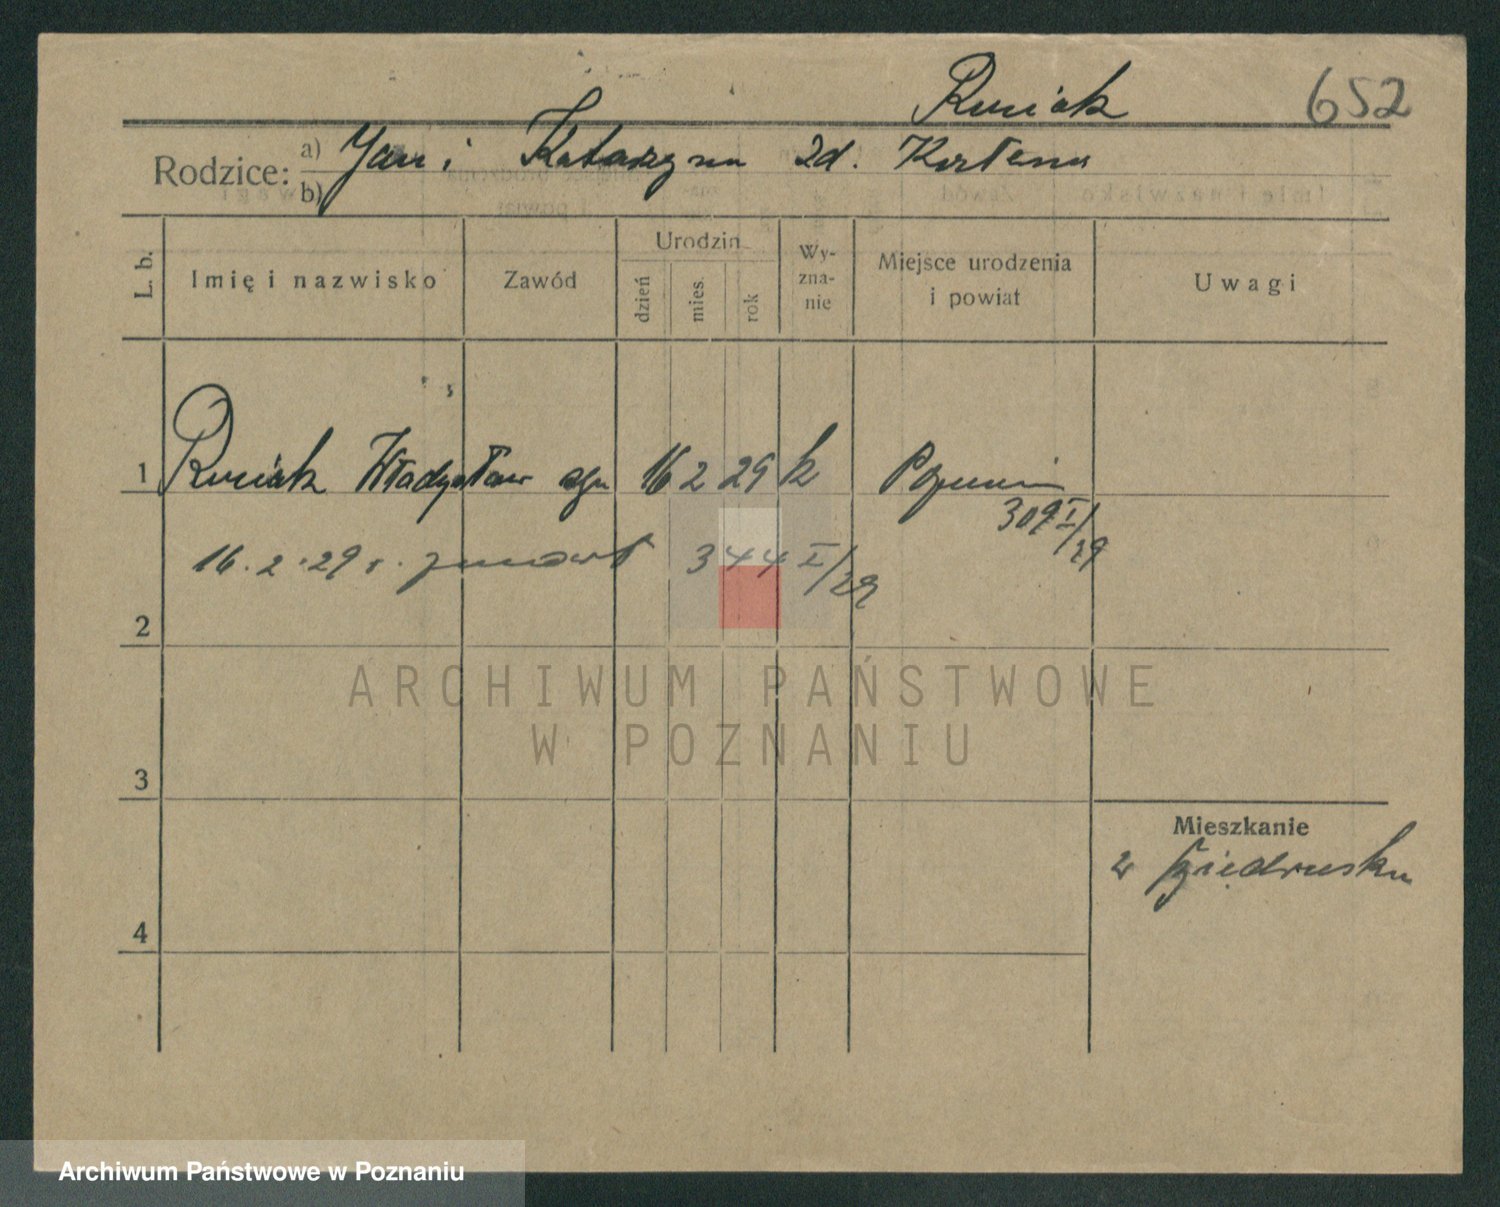 Rusiak 652
Rodzice: a) Jan i Katarzyna zd.
b)
L. b. Imię i nazwisko Zawód Urodzin dzień mies. rok Wy-zna-nie Miejsce urodzenia i powiat Uwagi
1 Rusiak Władysław syn 16 2 29 k
309 I/29
16.2.29 r. 344 I/29
2
3
4
Mieszkanie
w Biedrusku
ARCHIWUM PAŃSTWOWE
W POZNANIU
Archiwum Państwowe w Poznaniu